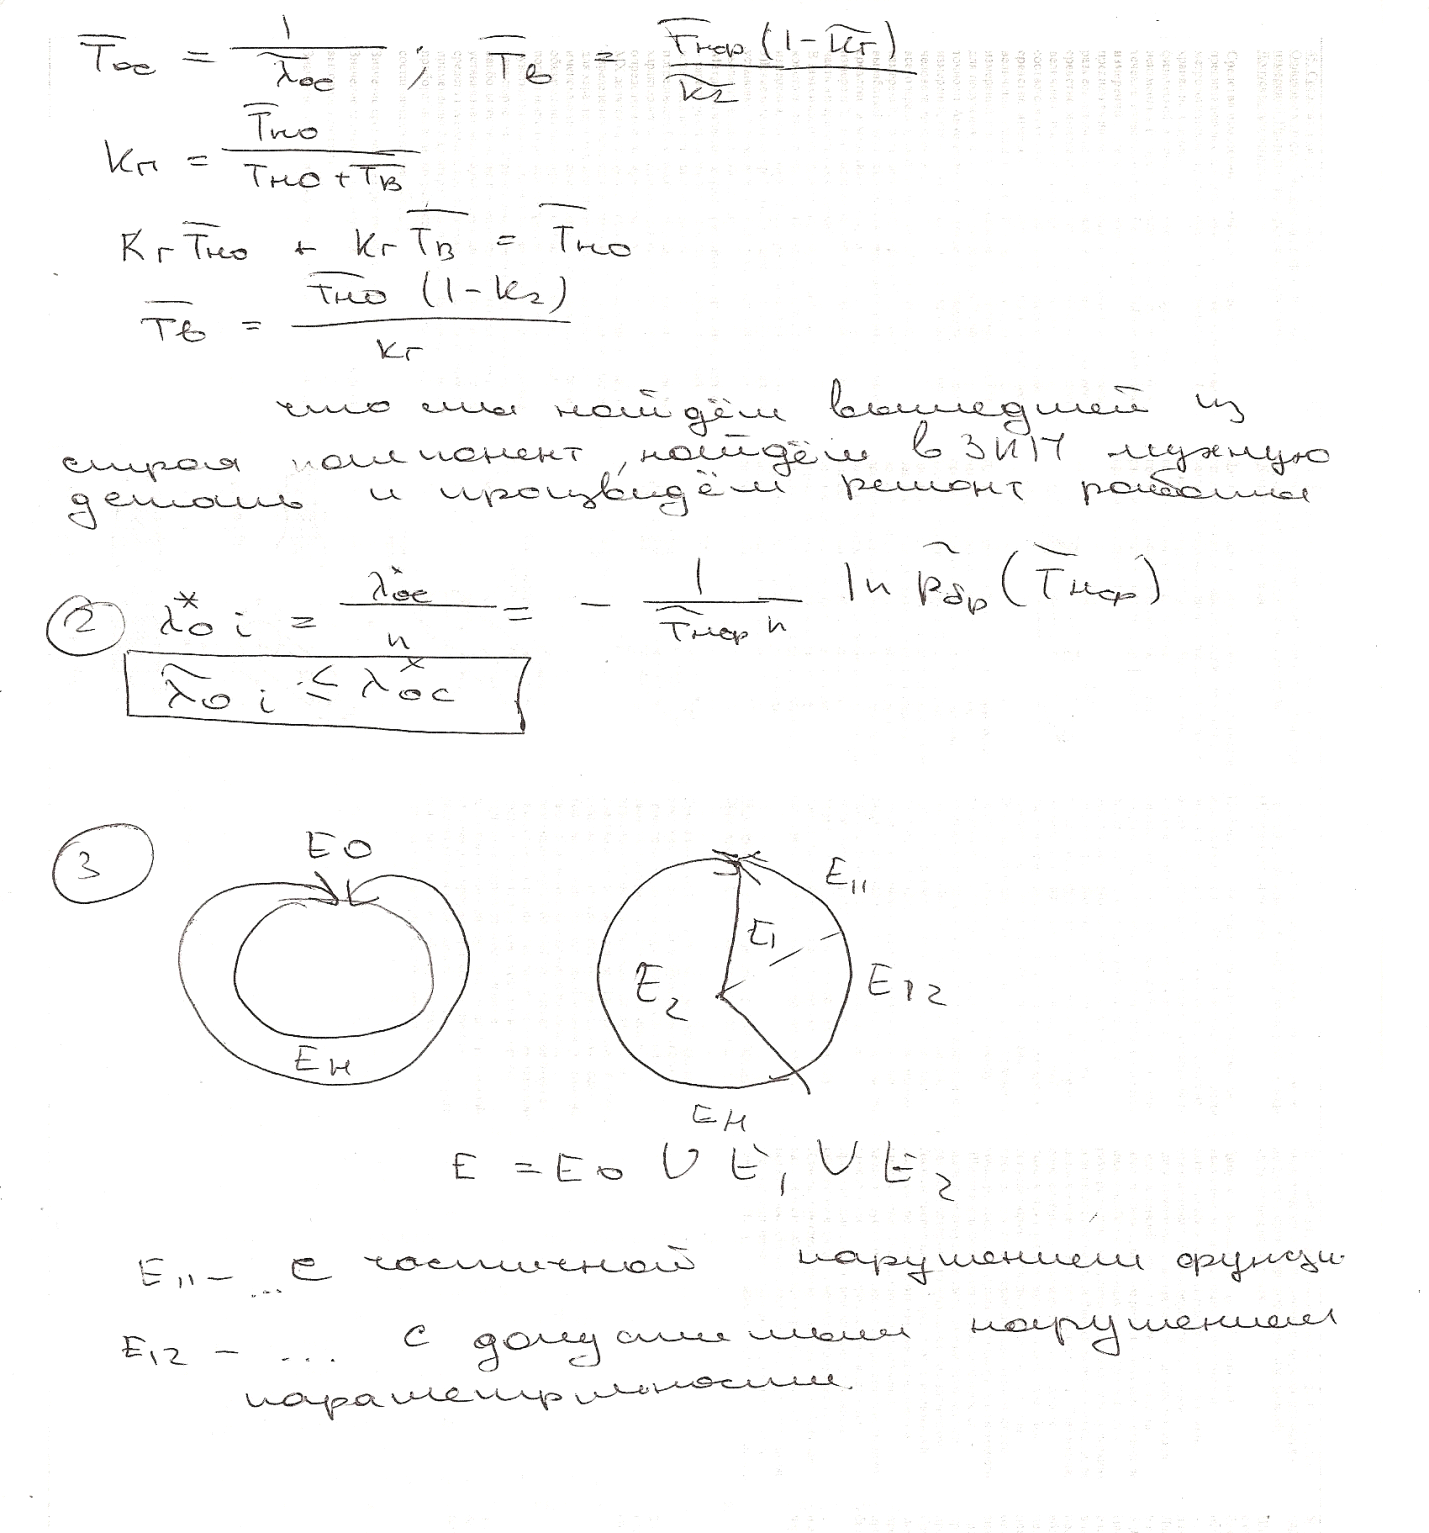 T̅ос = 1 / λ̅ос ; T̅в = T̃нор (1 - K̃г) / K̃г
Kп = T̅но / Tно + T̅в
Kг T̅но + Kг T̅в = T̅но
T̅в = T̅но (1 - Kг) / Kг
что мы найдём вышедшей из
строя компонент, найдём в ЗИП нужную
деталь и произведём ремонт
2 λ*о i = λ*ос / n = - 1 / T̃нор n ln p̃бр (T̃нор)
λ̃о i ≤ λ*ос
3 E0
Eн
E11
E1
E2
E12
Eн
E = E0 ∪ E1 ∪ E2
E11 - ... с частичной нарушением функци.
E12 - ... с допустимым нарушением